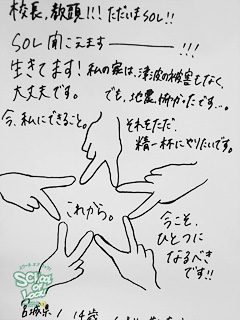 校長、教頭!!! ただいまSOL!!
SOL 聞こえます――――!!!
生きてます! 私の家は、津波の被害もなく、
大丈夫です。 でも、地震、怖かったです…。
今、私にできること。
それをただ、
精一杯にやりたいです。
これから。
今こそ、
ひとつに
なるべき
です!!
SCHOOL OF LOCK!
宮城県 / 14歳 /